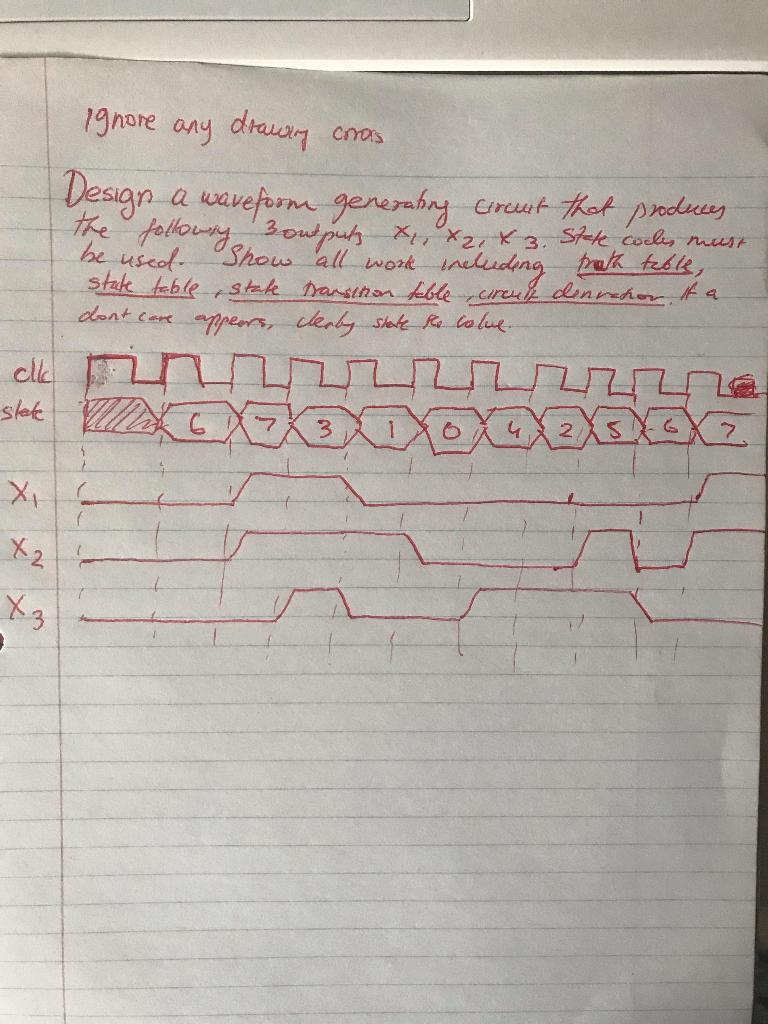 Ignore any drawing errors
Design a waveform generating circuit that produces
the following 3 outputs X1, X2, X3. State codes must
be used. Show all work including truth table,
state table, state transition table, circuit derivation. If a
dont care appears, clearly state the value.
clk
state 6 7 3 1 0 4 2 5 6 7
X1
X2
X3